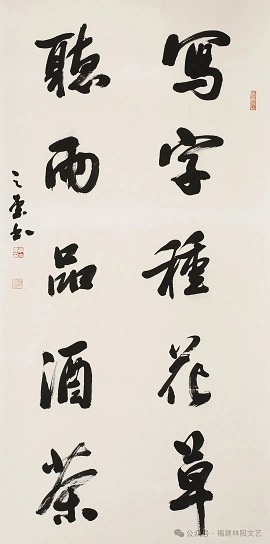 寫字種花草
聽雨品酒茶
公众号 · 福建林阳文艺